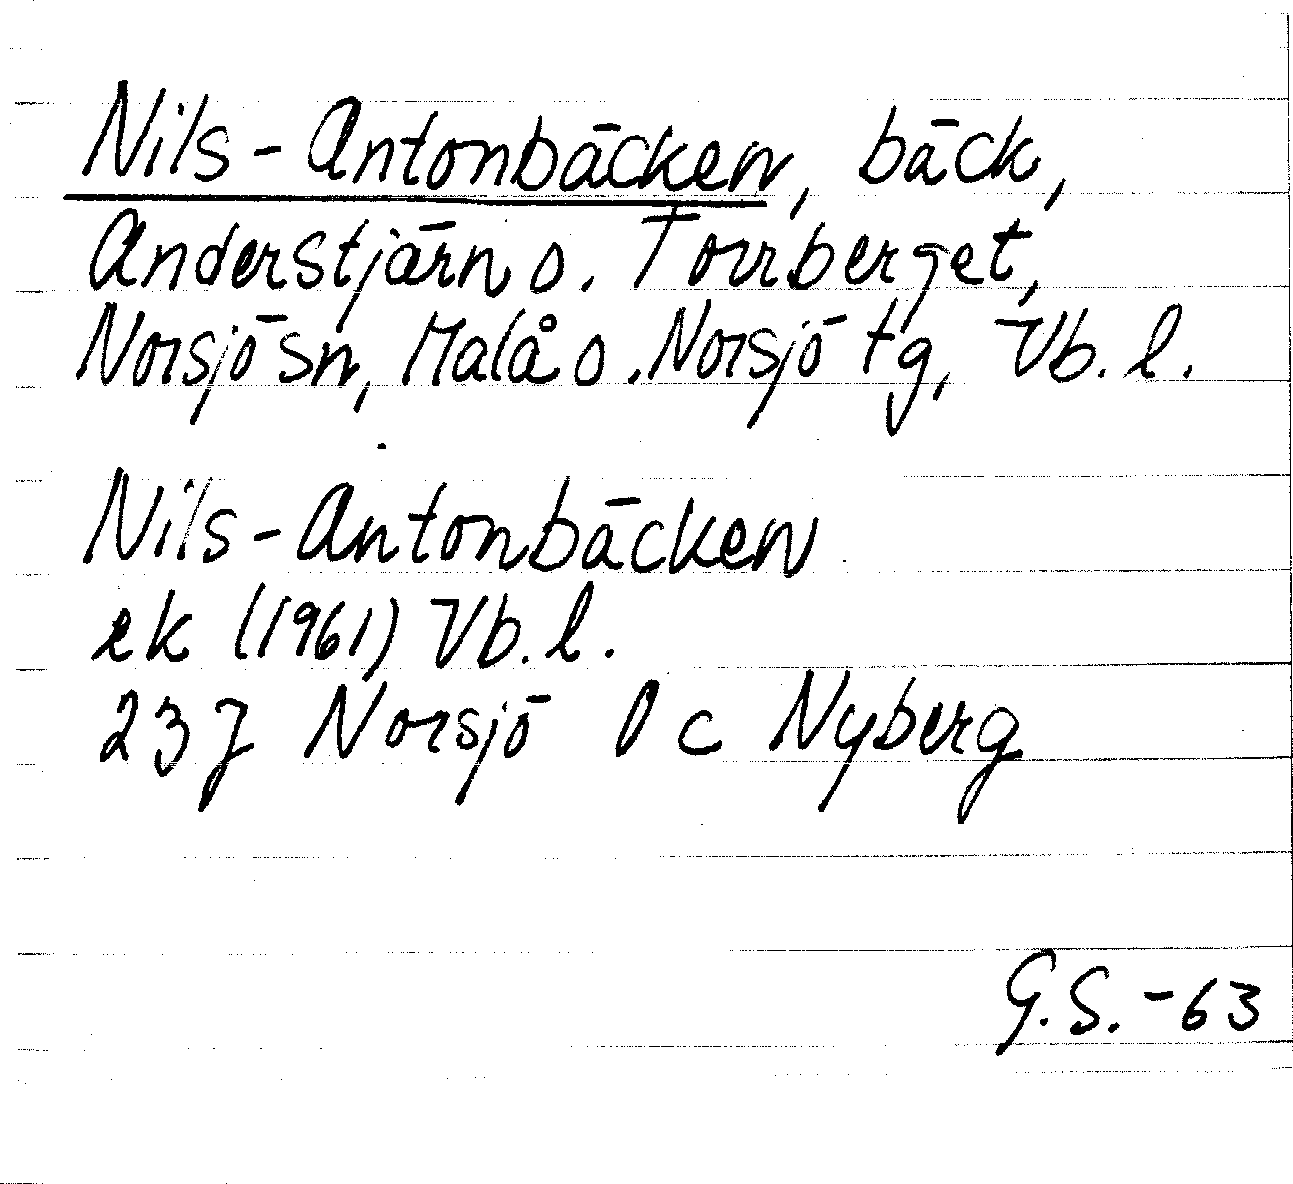 Nils-Antonbäcken, bäck,
Anderstjärn o. Torrberget,
Norsjö sn, Malå o. Norsjö tg, Vb. l.
Nils-Antonbäcken
ek (1961) Vb. l.
23 J Norsjö 0 c Nyberg
G.S. -63